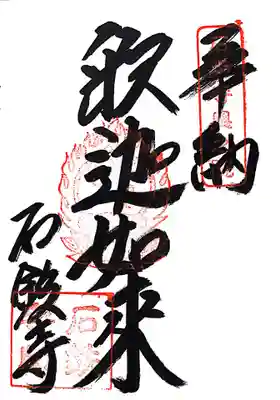 奉納
釈迦如来
石鉄寺